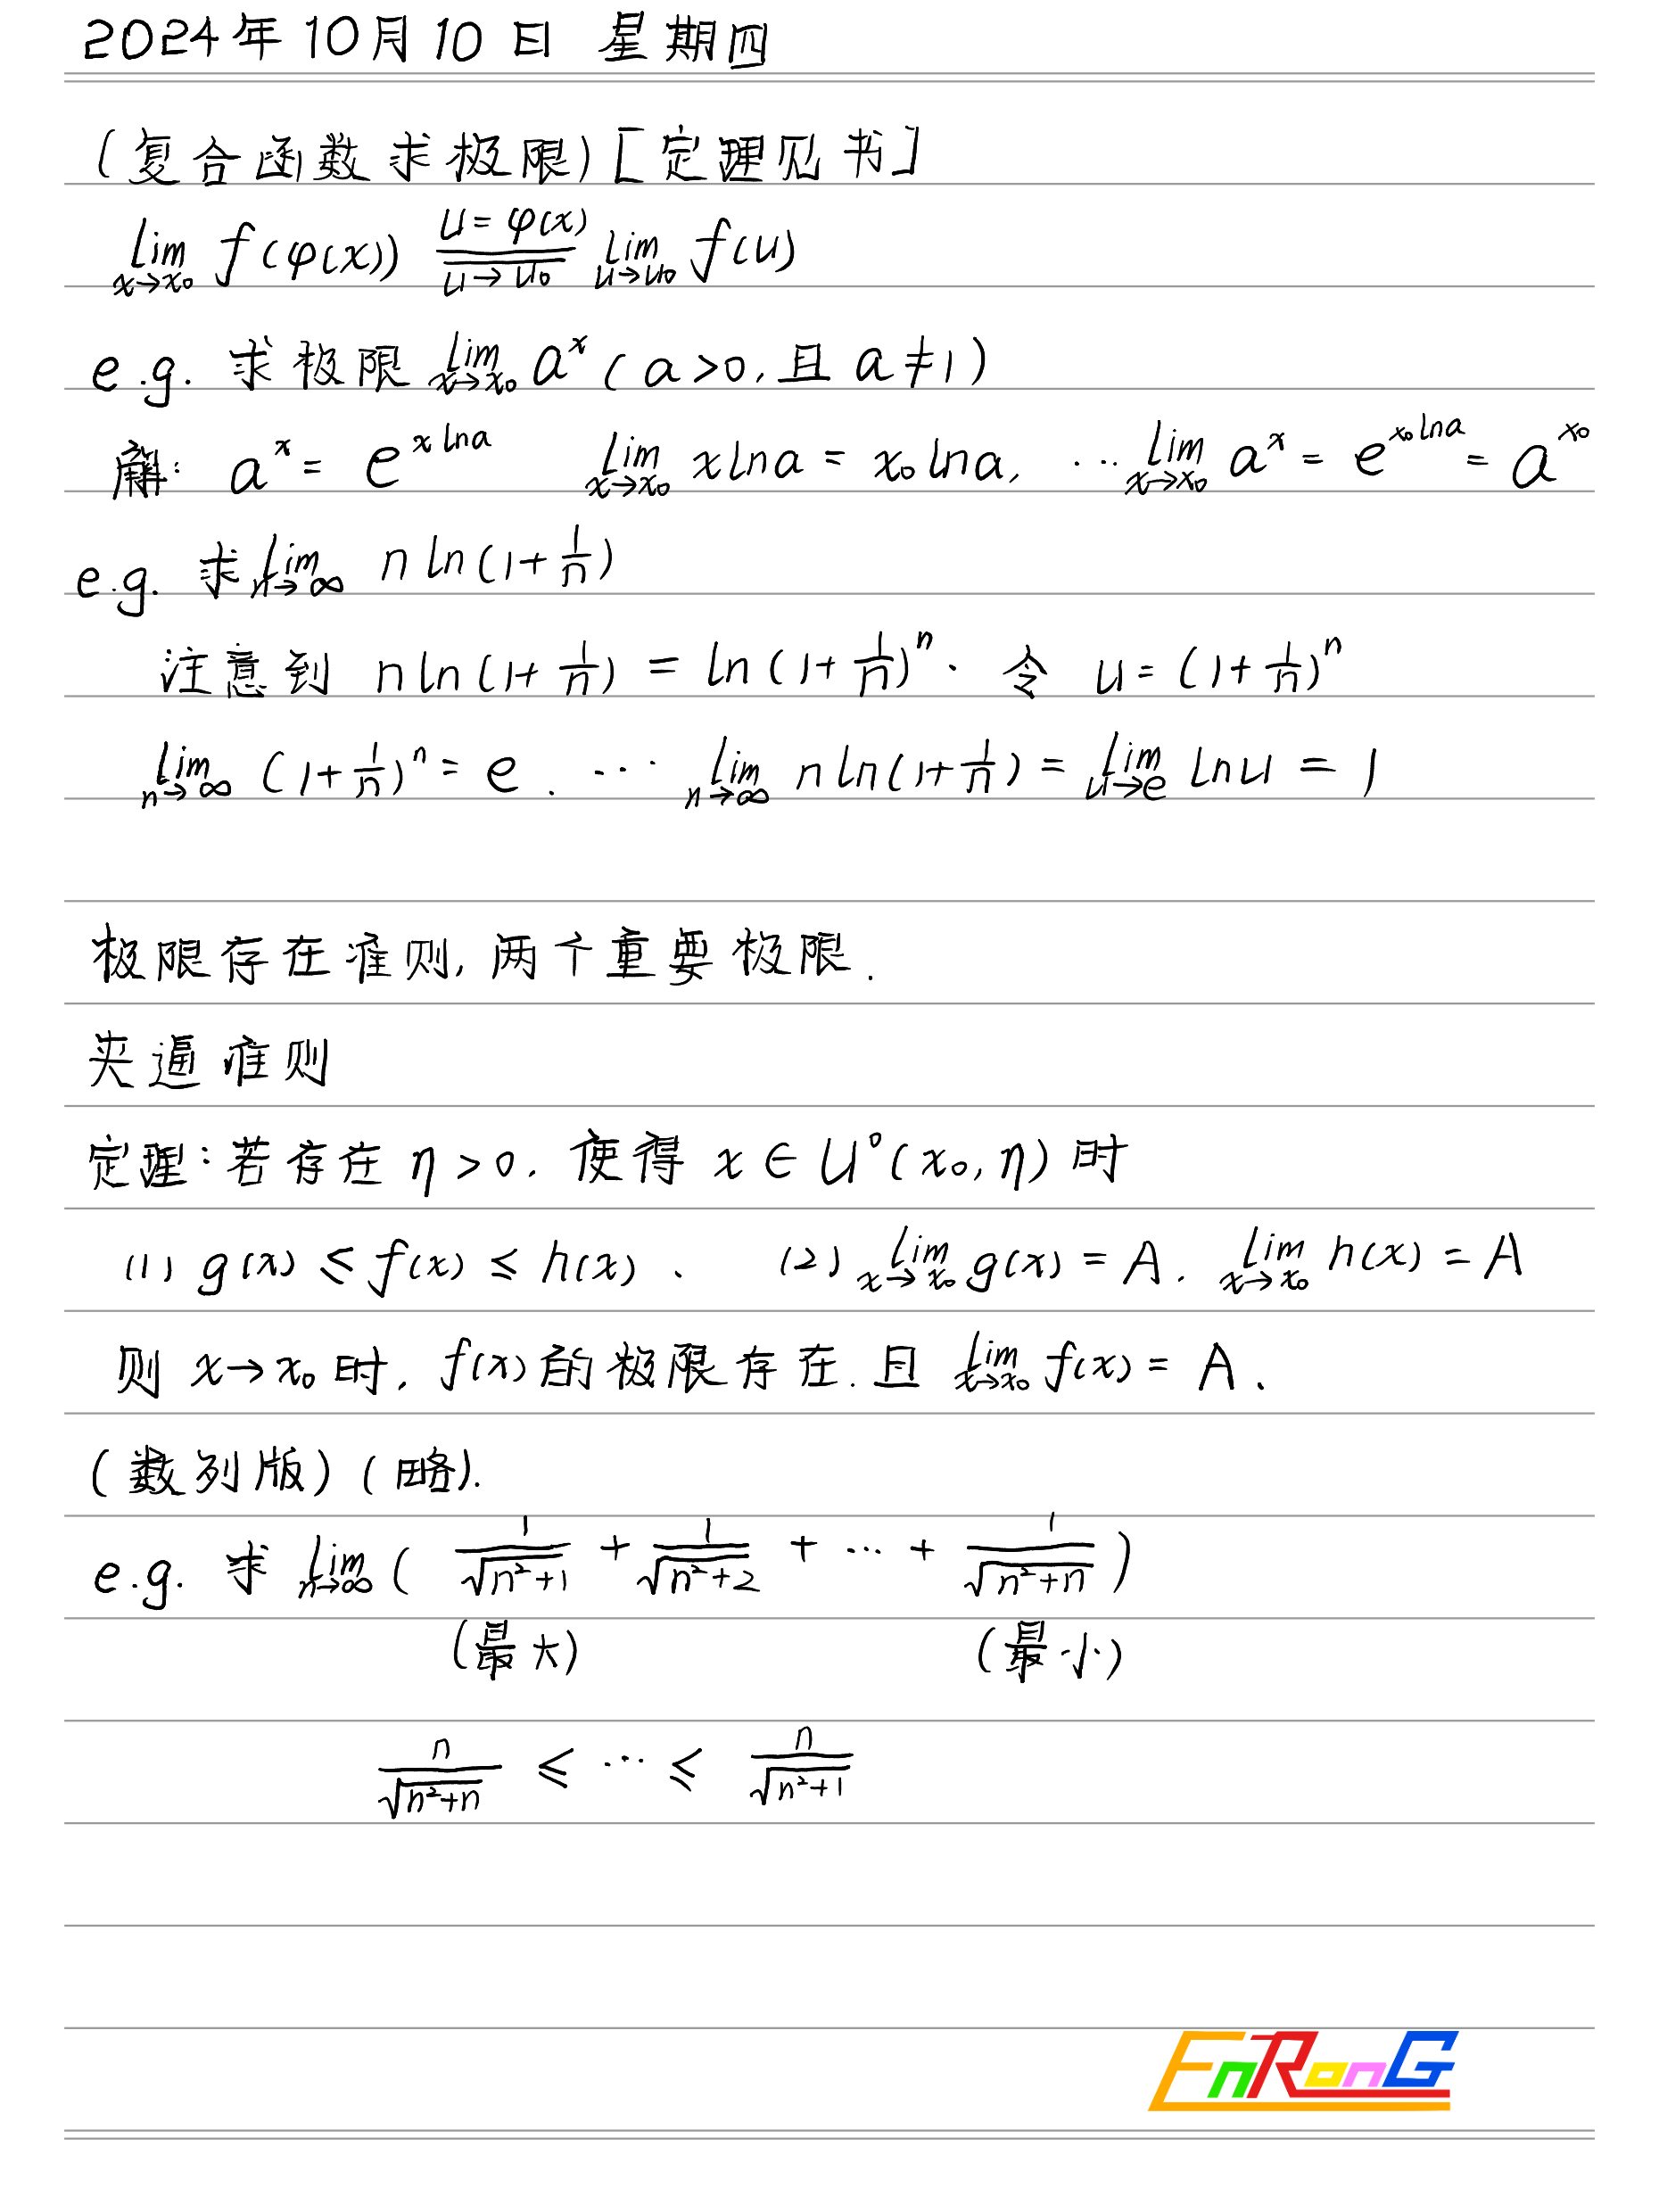 2024年10月10日 星期四
(复合函数求极限)[定理见书]
lim_{x→x₀} f(φ(x)) \xlongequal[u→u₀]{u=φ(x)} lim_{u→u₀} f(u)
e.g. 求极限 lim_{x→x₀} a^x (a>0,且 a≠1)
解: a^x = e^{x ln a} lim_{x→x₀} x ln a = x₀ ln a, ... lim_{x→x₀} a^x = e^{x₀ ln a} = a^{x₀}
e.g. 求 lim_{n→∞} n ln(1+1/n)
注意到 n ln(1+1/n) = ln(1+1/n)^n. 令 u=(1+1/n)^n
lim_{n→∞} (1+1/n)^n = e. ... lim_{n→∞} n ln(1+1/n) = lim_{u→e} ln u = 1
极限存在准则,两个重要极限.
夹逼准则
定理:若存在 η>0. 使得 x∈U°(x₀,η)时
(1) g(x)≤f(x)≤h(x)、 (2) lim_{x→x₀} g(x)=A. lim_{x→x₀} h(x)=A
则 x→x₀时, f(x)的极限存在.且 lim_{x→x₀} f(x)=A.
(数列版)(略).
e.g. 求 lim_{n→∞} ( 1/√(n²+1) + 1/√(n²+2) + ... + 1/√(n²+n) )
(最大) (最小)
n/√(n²+n) ≤ ... ≤ n/√(n²+1)
EnRonG